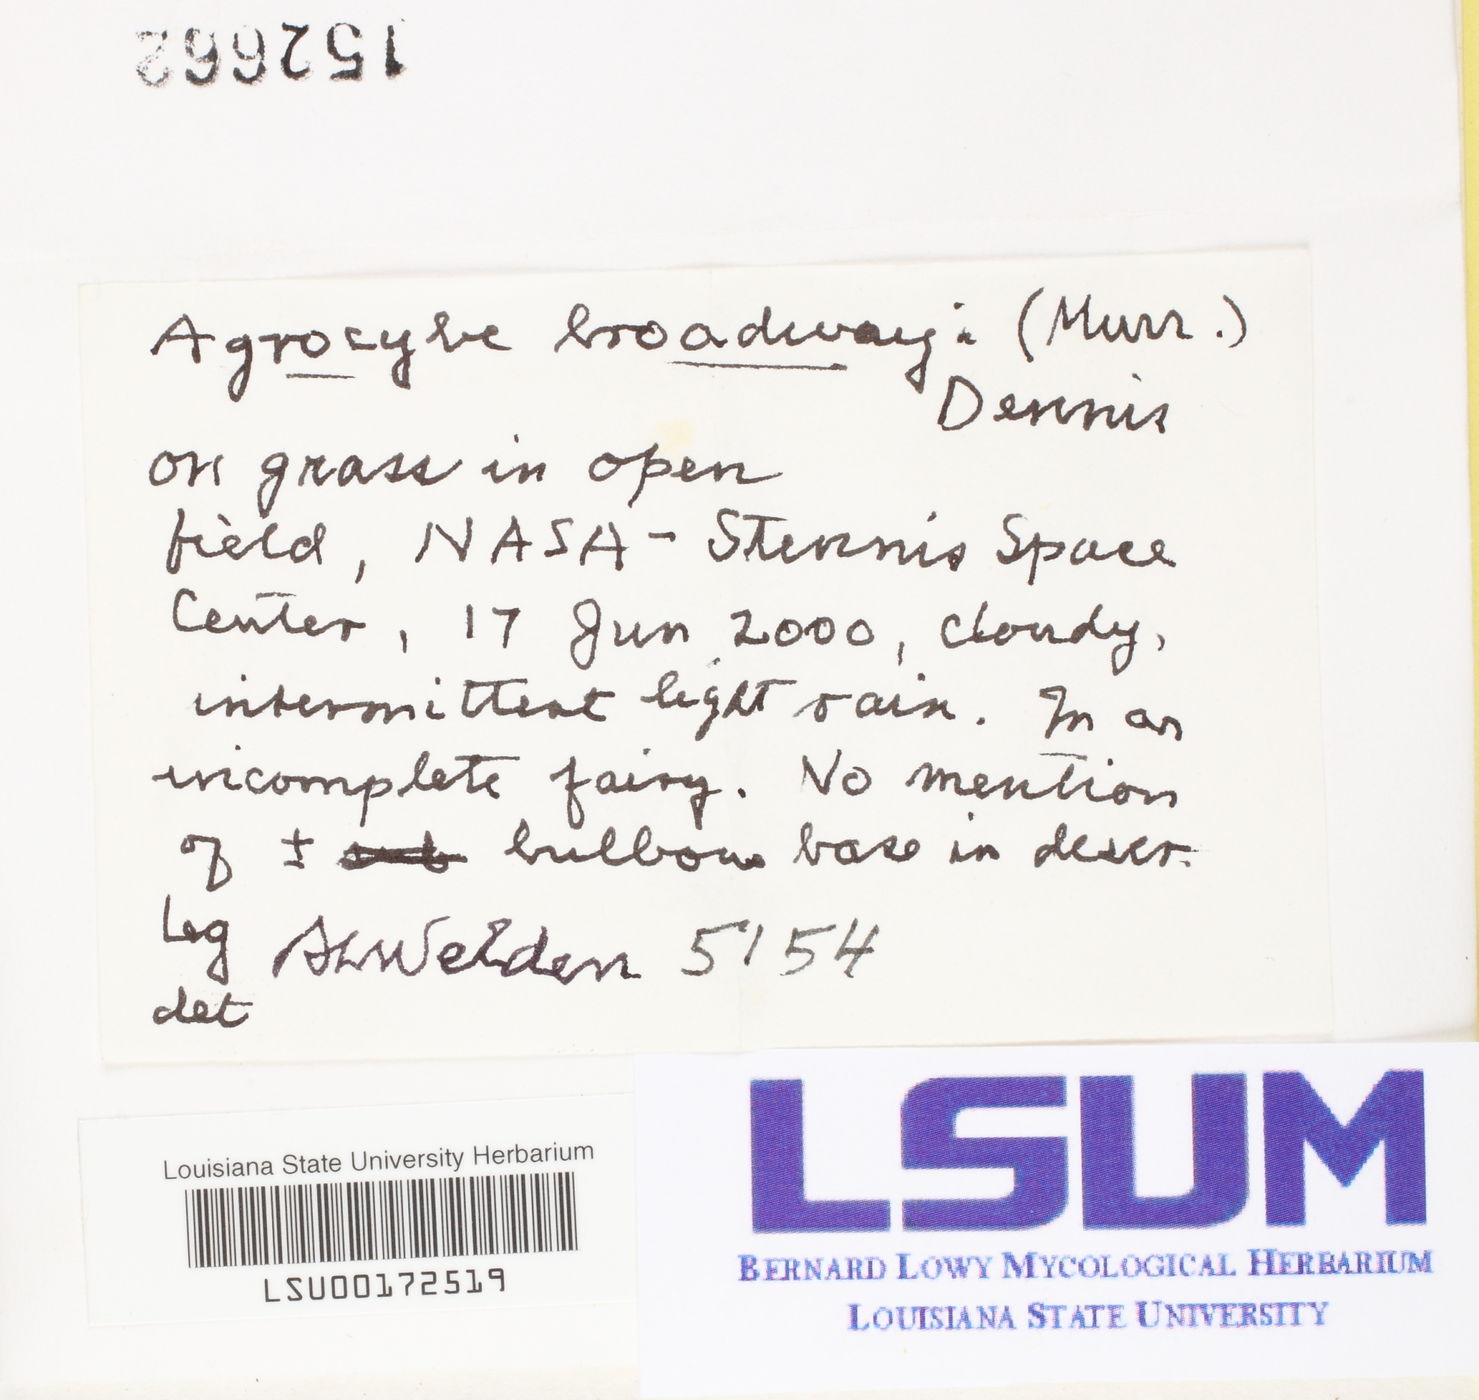 152662
Agrocybe broadwayi (Murr.)
Dennis
on grass in open
field, NASA - Stennis Space
Center, 17 Jun 2000, cloudy,
intermittent light rain. In an
incomplete fairy. No mention
of ± sub bulbous base in descr.
Leg ALWelden 5154
det
Louisiana State University Herbarium
LSU00172519
LSUM
BERNARD LOWY MYCOLOGICAL HERBARIUM
LOUISIANA STATE UNIVERSITY